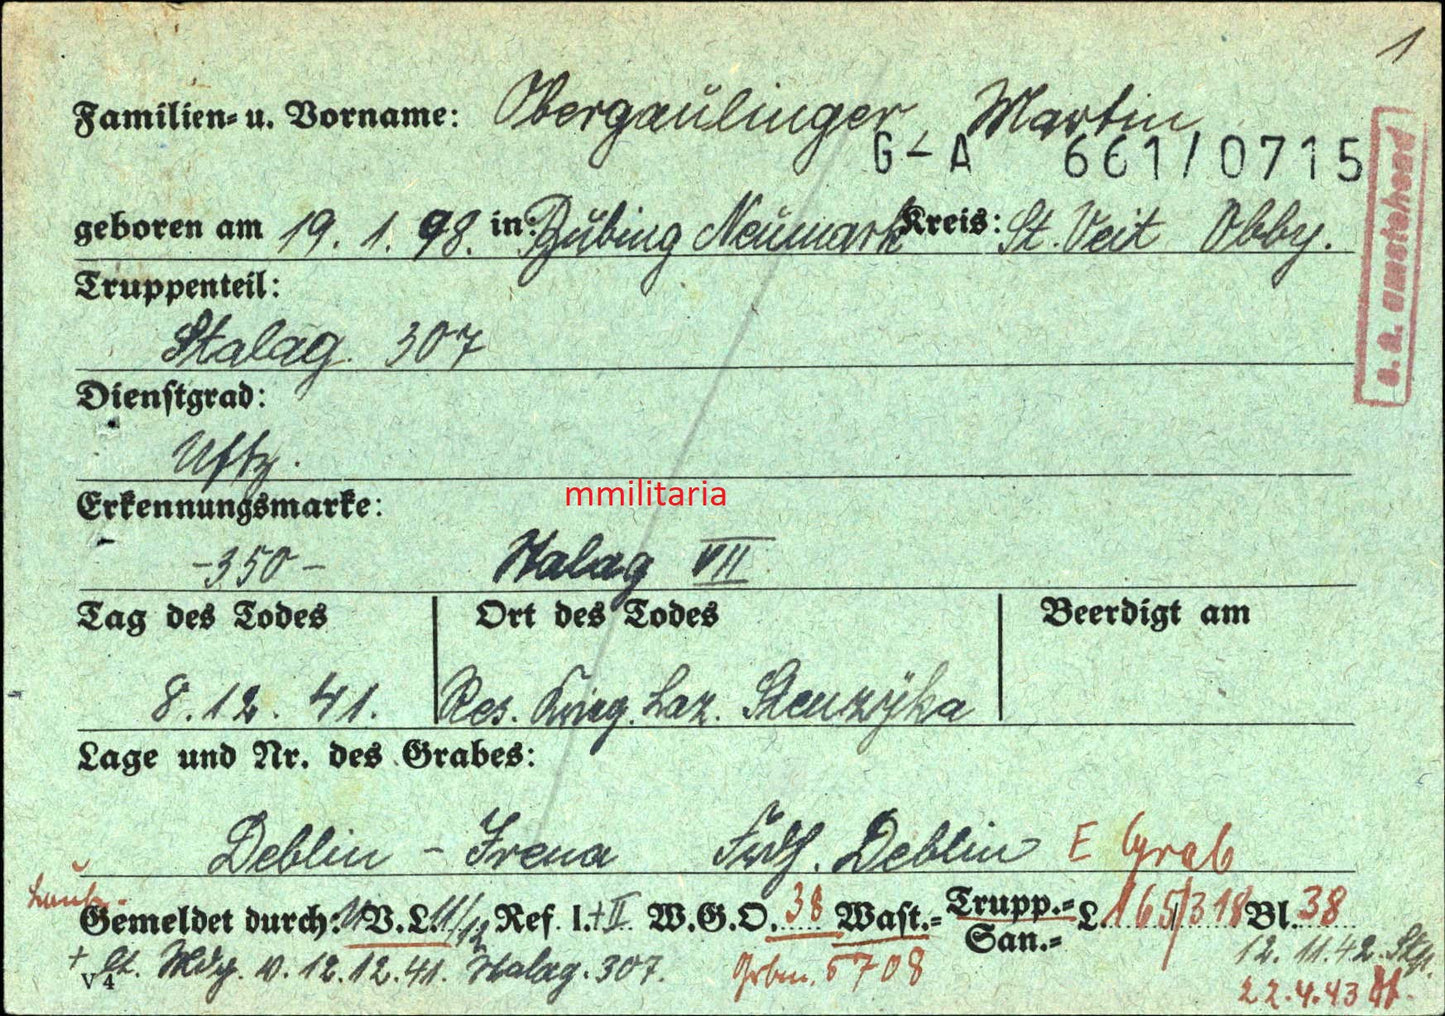 1
Familien- u. Vorname: Obergaulinger Martin
G-A 661/0715
geboren am 19. 1. 98. in: Bübing Neumark Kreis: St. Veit Obby.
s. a. umstehend
Truppenteil:
Stalag 307
Dienstgrad:
Uffz.
Erkennungsmarke:
mmilitaria
-350- Stalag VII
Tag des Todes Ort des Todes Beerdigt am
8. 12. 41. Res. Krieg. Laz. Stenzyka
Lage und Nr. des Grabes:
Deblin - Irena Frdh. Deblin E Grab
Gemeldet durch: V. L. 11/12 Ref I. + II W.G.O. 38 Wast.= Trupp.= L. 165/318 Bl. 38
San.=
+ lt. Mdg. v. 12.12.41. Stalag. 307. 5708 12. 11. 42.
V 4 22.4.43